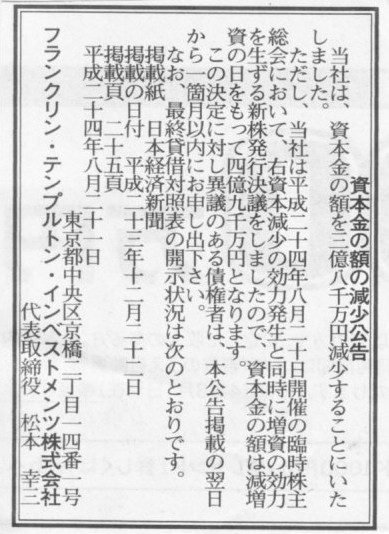 資本金の額の減少公告
当社は、資本金の額を三億八千万円減少することにいた
しました。
ただし、当社は平成二十四年八月二十日開催の臨時株主
総会において、右資本減少の効力発生と同時に増資の効力
を生ずる新株発行決議をしましたので、資本金の額は減増
資の日をもって四億九千万円となります。
この決定に対し異議のある債権者は、本公告掲載の翌日
から一箇月以内にお申し出下さい。
なお、最終貸借対照表の開示状況は次のとおりです。
掲載紙 日本経済新聞
掲載の日付 平成二十三年十二月二十一日
掲載頁 二十五頁
平成二十四年八月二十一日
東京都中央区京橋二丁目一四番一号
フランクリン・テンプルトン・インベストメンツ株式会社
代表取締役 松本 幸三